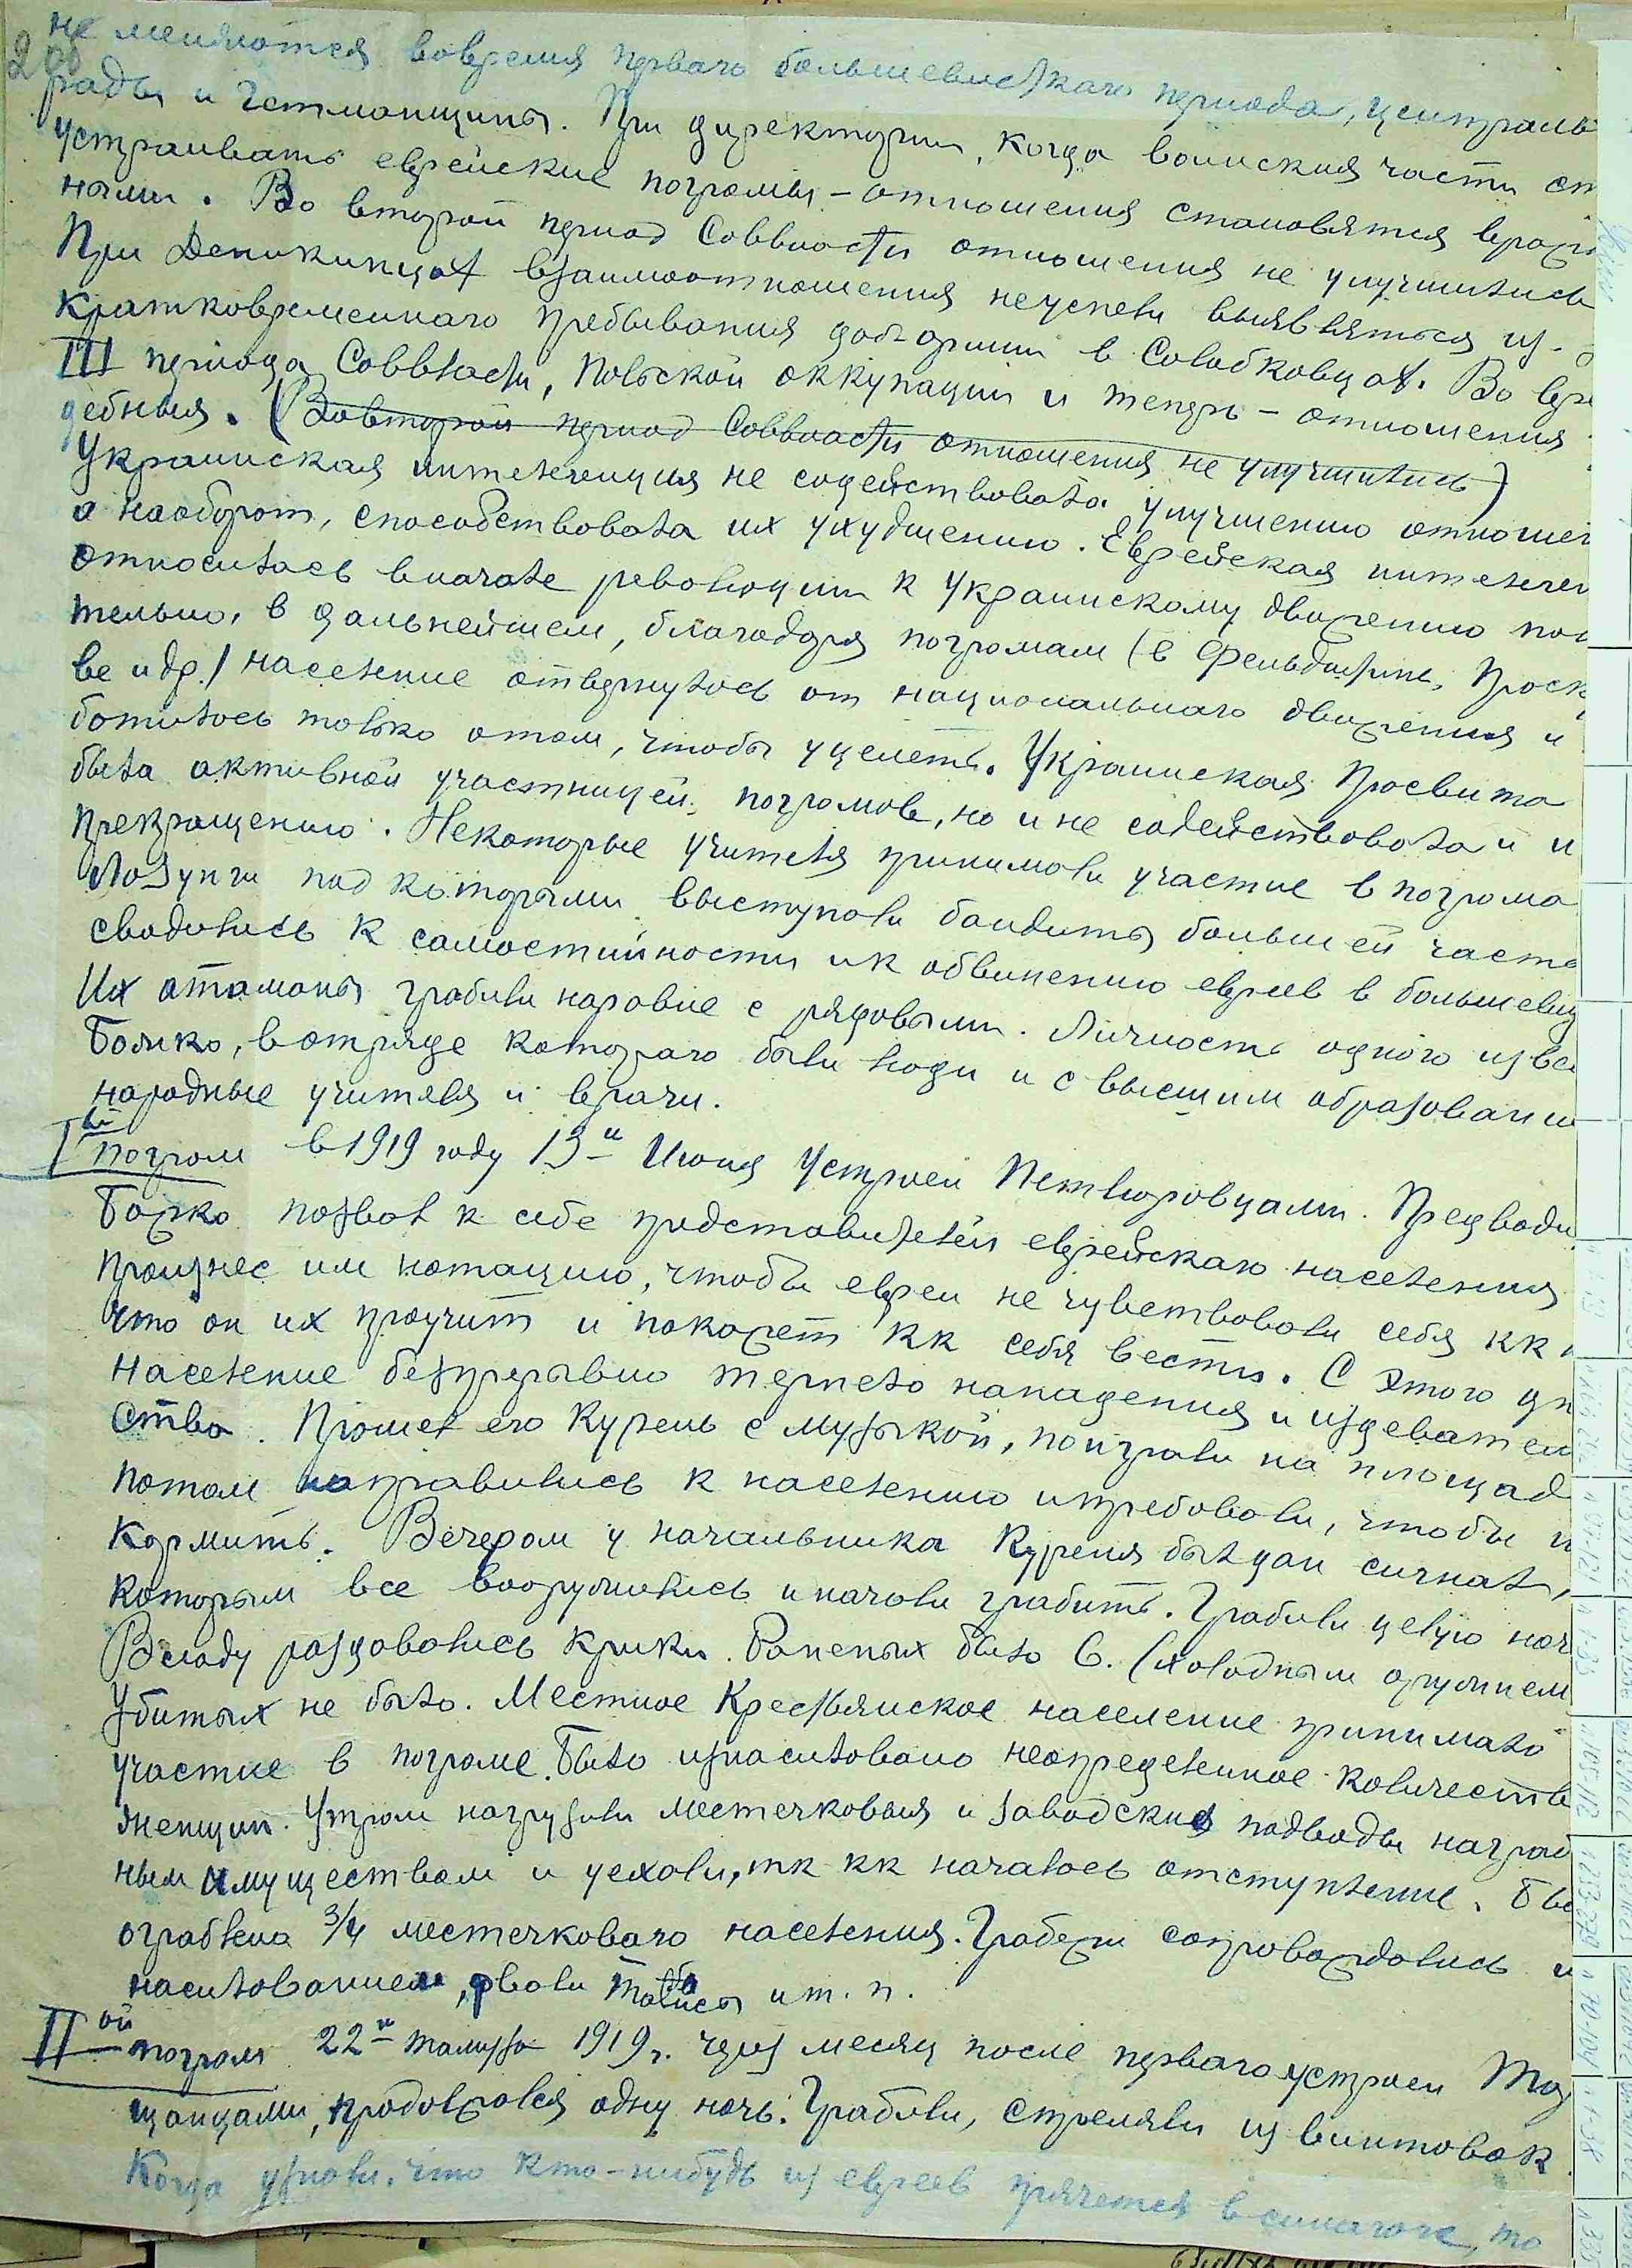 200
не меняются вовремя перваго большевистскаго периода, централь
рады и Гетманщины. При директории, когда воинския части ст
устраивать еврейские погромы - отношения становятся враж
ными. Во второй период Соввласти отношения не улучшились
При Деникинцах взаимоотношения неуспели выявляться из-
кратковременнаго пребывания доб-армии в Солобковцах. Во вре
III периода Соввласти, Польской оккупации и теперь - отношения
дебныя. (Вовторой период Соввласти отношения не улучшились)
Украинская интелегенция не содействовала улучшению отношен
а наоборот, способствовала их ухудшению. Еврейская интелеген
относилась вначале революции к Украинскому движению пол
тельно, в дальнейшем, благодаря погромам (в Фельдштине, Проск
ве и др.) население отвернулось от национальнаго движения и
ботилось только отом, чтобы уцелеть. Украинская Просвита
была активной участницей погромов, но и не содействовала и и
прекращению. Некоторые учителя принимали участие в погрома
Лозунги под которыми выступали бандиты большей часть
сводились к самостийности ик обвинению евреев в большевиз
Их атаманы грабили наровне с рядовыми. Личность одного изве
Божко, вотряде котораго были люди и с высшим образовани
народные учителя и врачи.
Iый погром в 1919 году 13-и Июня Устроен Петлюровцами. Предводи
Божко позвал к себе представителей еврейскаго населения
произнес им нотацию, чтобы евреи не чувствовали себя кк
что он их проучит и покажет кк себя вести. С этого дн
население безпрерывно терпело нападения и издеватель
ства. Пришел его Курень с музыкой, поиграли на площад
потом направились к населению итребовали, чтобы и
кормить. Вечером у начальника Куреня был дан сигнал,
которым все вооружились иначали грабить. Грабили целую ноч
Всюду раздавались крики. Раненых было 6. (холодным оружием
Убитых не было. Местное Крестьянское население принимало
участие в погроме. Было изнасиловано неопределенное количеств
женщин. Утром нагрузили местечковыя и заводския подводы награб
ным имуществом и уехали, тк кк началось отступление. Бы
ограблена 3/4 местечковаго населения. Грабежи сопровождались и
насилованием, рвали талисы ит. п.
IIой погром 22-и тамуза 1919г. через месяц после перваго устроен Та
щанцами, продолжался одну ночь. Грабили, стреляли из винтовок
Когда узнали, что кто-нибудь из евреев прячется в синагоге, то